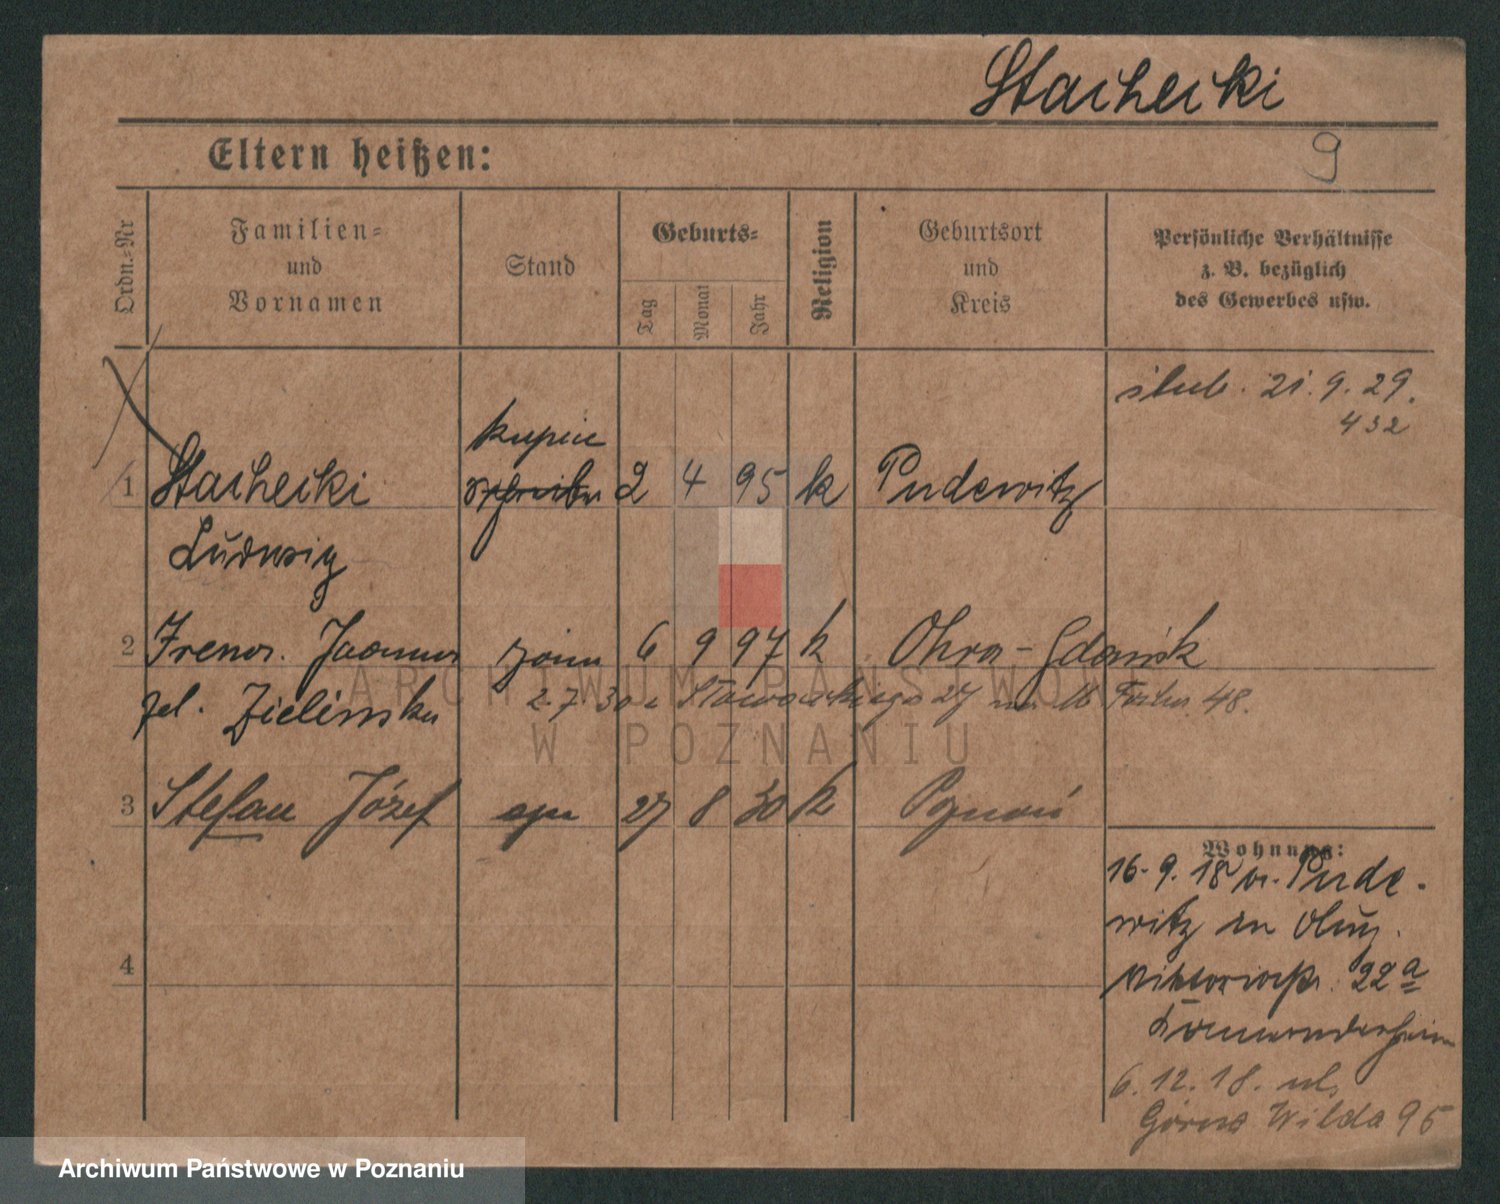 Stachecki
9
Eltern heißen:
Ordn.-Nr
Familien-
und
Vornamen
Stand
Geburts-
Tag
Monat
Jahr
Religion
Geburtsort
und
Kreis
Persönliche Verhältnisse
z. B. bezüglich
des Gewerbes usw.
ślub. 21.9.29.
432
kupiec
1 Stachecki Schreiber 2 4 95 k Pudewitz
Ludwig
2 Irena. Joanna żona 6 9 97 k Ohra-Gdańsk
Zielińska 2.7.30 Słowackiego 27 48.
3 Stefan Józef syn 27 8 30 k Poznań
Wohnung:
16.9.18 v. Pude-
witz in
4
Viktoriastr. 22a
6.12.18. ul.
Górna Wilda 95
ARCHIWUM PAŃSTWOWE
W POZNANIU
Archiwum Państwowe w Poznaniu